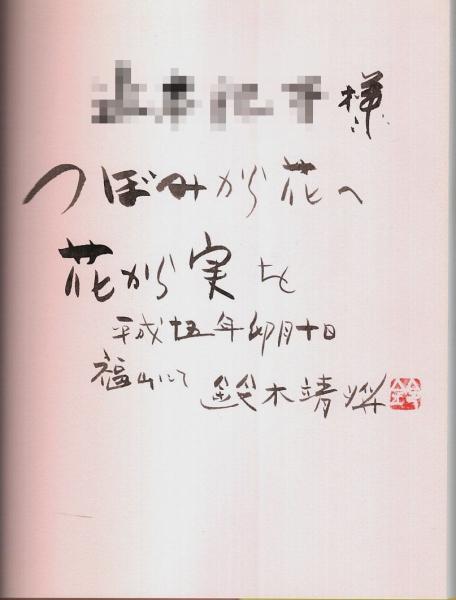 様
つぼみから花へ
花から実を
平成十五年卯月十日
福山にて
鈴木靖将